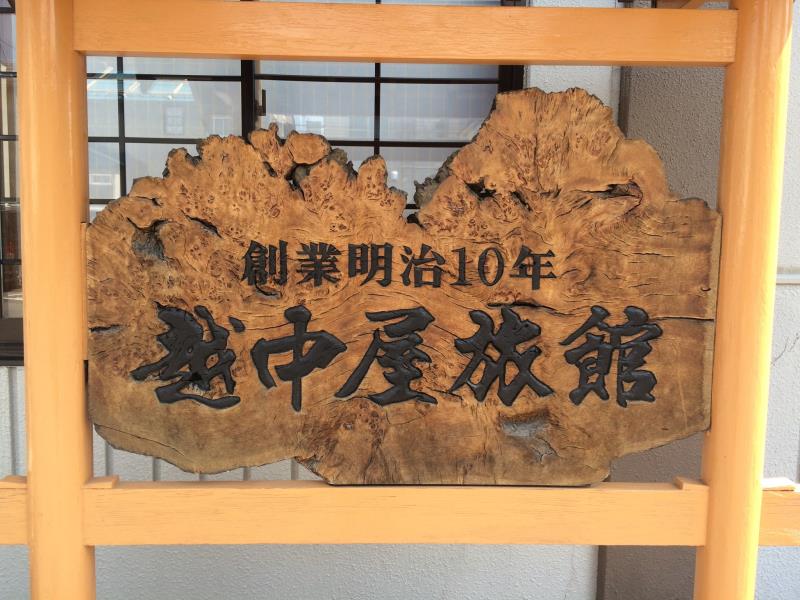 創業明治10年
越中屋旅館